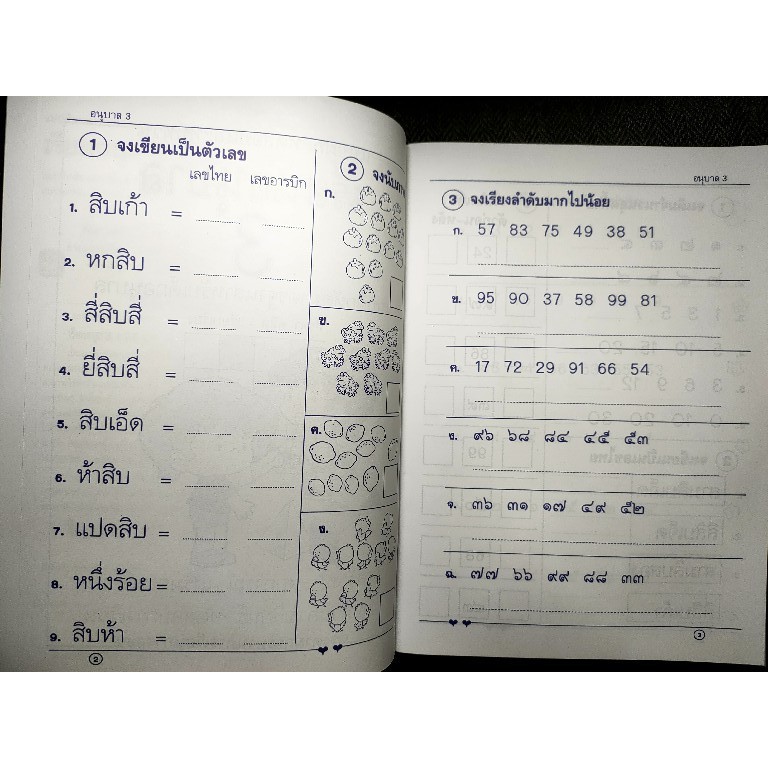 อนุบาล 3
1 จงเขียนเป็นตัวเลข
เลขไทย เลขอารบิก
1. สิบเก้า =
2. หกสิบ =
3. สี่สิบสี่ =
4. ยี่สิบสี่ =
5. สิบเอ็ด =
6. ห้าสิบ =
7. แปดสิบ =
8. หนึ่งร้อย =
9. สิบห้า =
2
2 จงนับ
ก.
ข.
ค.
ง.
อนุบาล 3
3 จงเรียงลำดับมากไปน้อย
ก. 57 83 75 49 38 51
ข. 95 90 37 58 99 81
ค. 17 72 29 91 66 54
ง. ๙๖ ๖๘ ๘๔ ๔๕ ๕๓
จ. ๓๖ ๓๑ ๑๗ ๔๙ ๕๒
ฉ. ๗๗ ๖๖ ๙๙ ๘๘ ๓๓
3